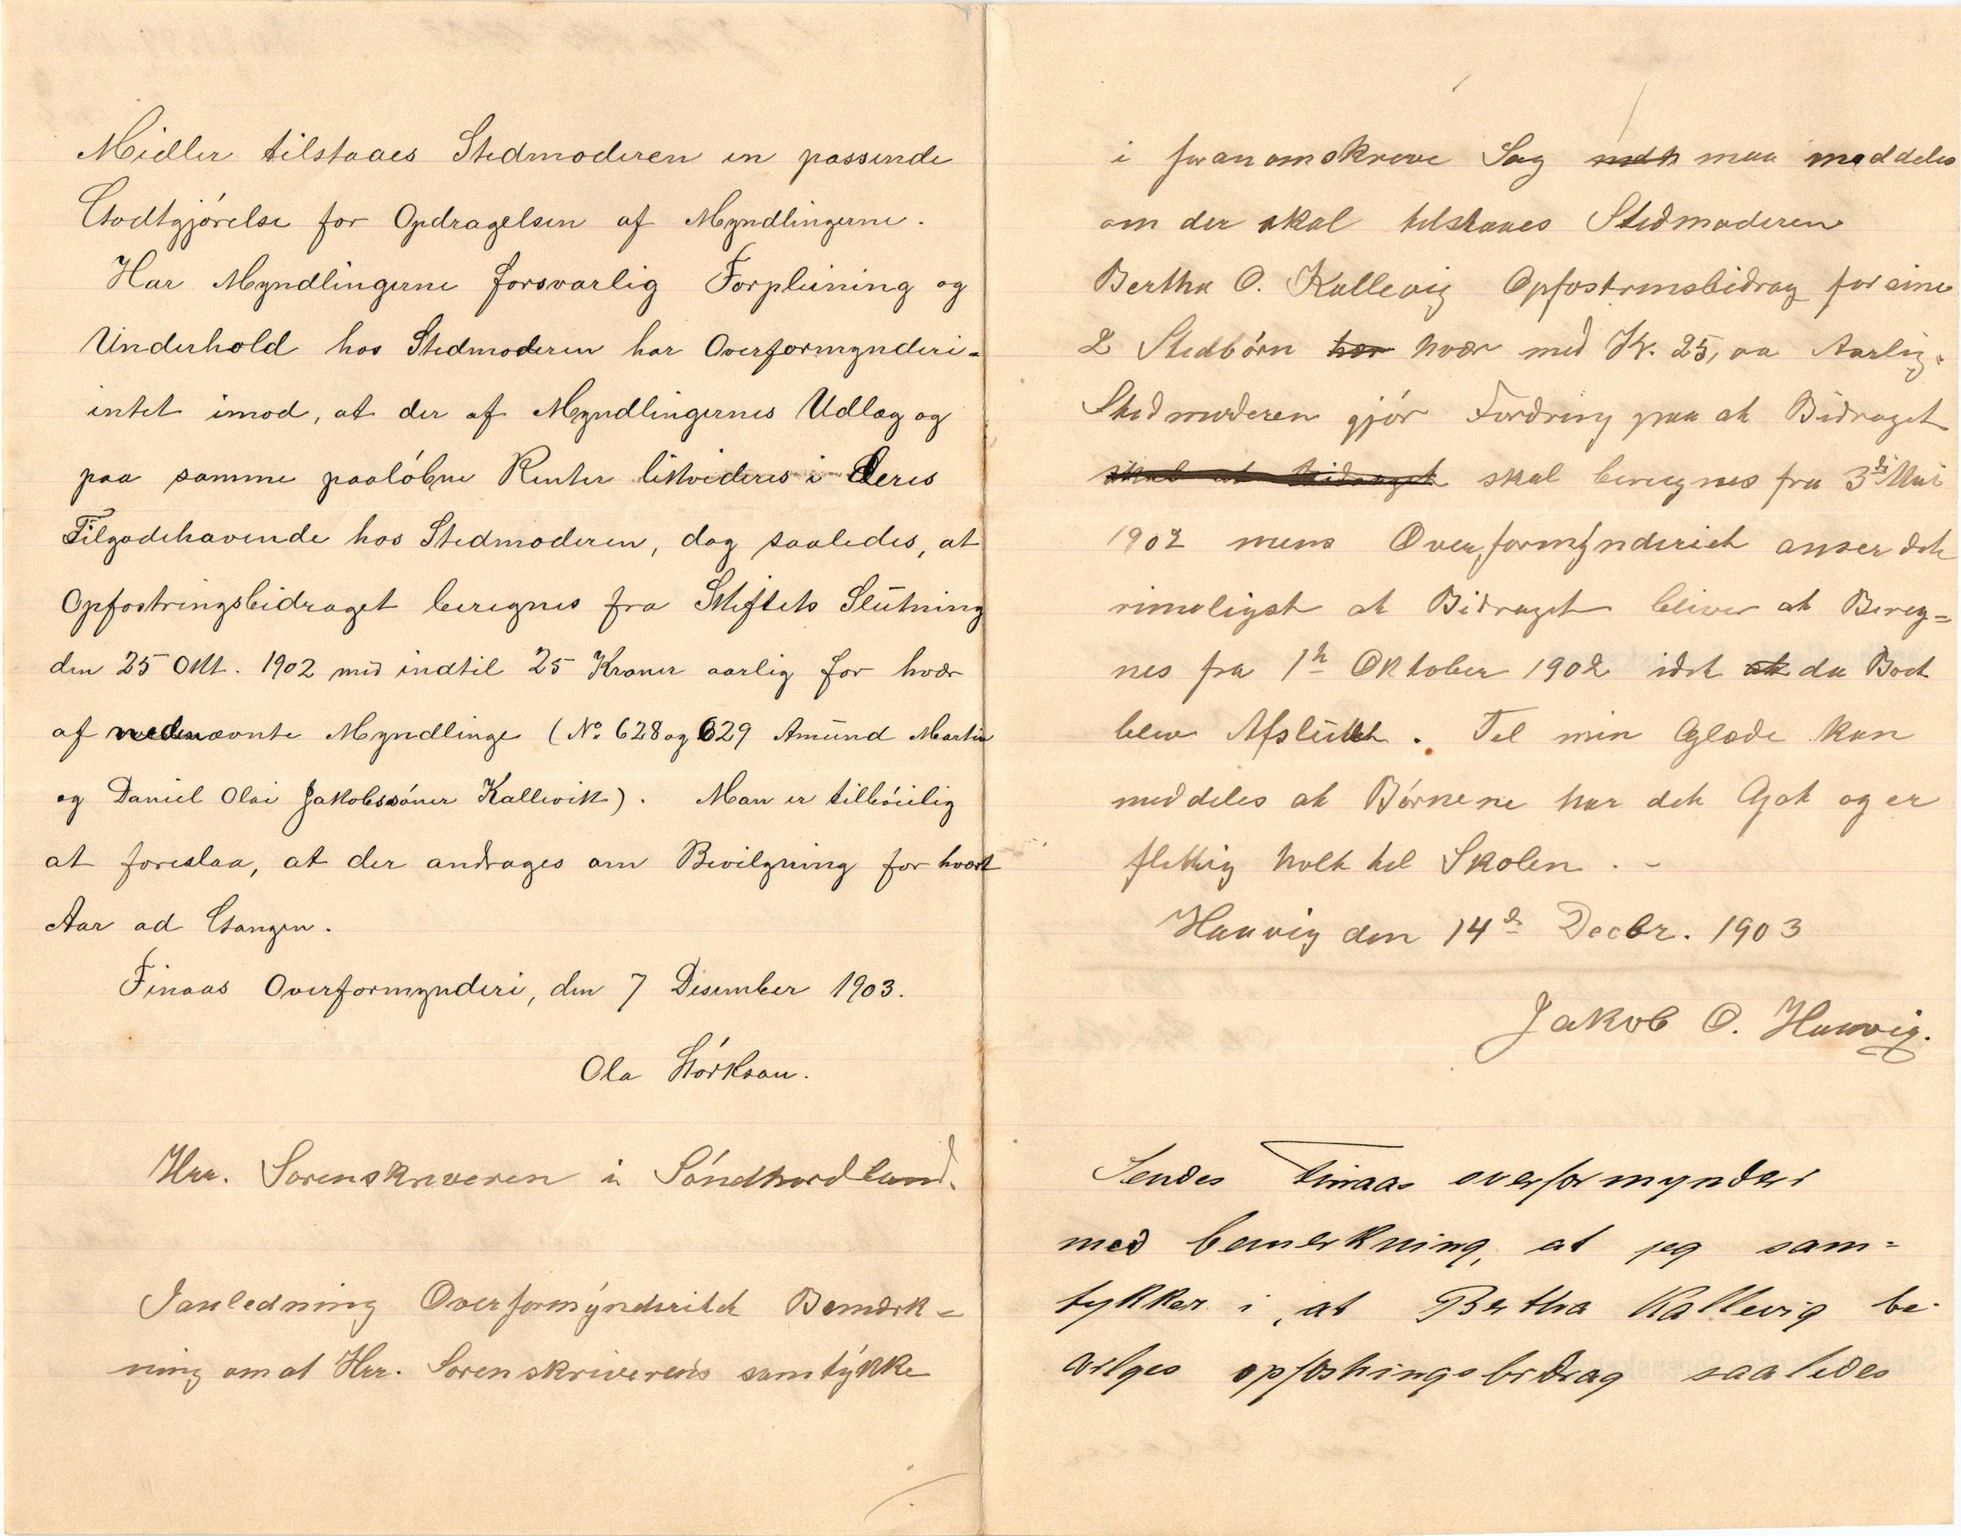 Midler tilstaaes Stedmoderen en passende
Godtgjórelse for Opdragelsen af Myndlingerne.
Har Myndlingerne forsvarlig Forpleining og
Underhold hos Stedmoderen har Overformynderi-
intet imod, at der af Myndlingernes Udlæg og
paa samme paalóbne Renter likvideres i deres
Tilgodehavende hos Stedmoderen, dog saaledes, at
Opfostringsbidraget beregnes fra Skiftets Slutning
den 25 Okt. 1902 med indtil 25 Kroner aarlig for hvær
af nedennævnte Myndlinge (No. 628 og 629 Amund Martin
og Daniel Olai Jakobssóner Kallevik). Man er tilbóielig
at foreslaa, at der andrages om Bevilgning for hvært
Aar ad Gangen.
Finaas Overformynderi, den 7 Desember 1903.
Ola Stórkson.
Hrr. Sorenskriveren i Sóndhordland.
Ianledning Overformýnderiet Bemærk=
ning om at Hrr. Sorenskriverens samtýkke
i foranomskreve Sag maa meddeles
om der skal tilstaaes Stedmoderen
Bertha O. Kallevig Opfostrinsbidrag for sine
2 Stedbórn hvær med Kr. 25,oo Aarlig.
Stedmoderen gjór Fordring paa at Bidraget
skal at bidraget skal beregnes fra 3di Mai
1902 mens Overformýnderiet anser det
rimeligst at Bidraget bliver at Bereg=
nes fra 1ste Oktober 1902 idet at da Boet
blev Afsluttet. Til min Glæde kan
meddeles at Bórnene har det Got og er
flittig holt til Skolen. -
Haavig den 14de Decbr. 1903
Jakob O. Haavig.
Sendes Finaas overformynderi
med bemerkning, at jeg sam=
tykker i, at Bertha Kallevig be-
vilges opfostringsbidrag saaledes